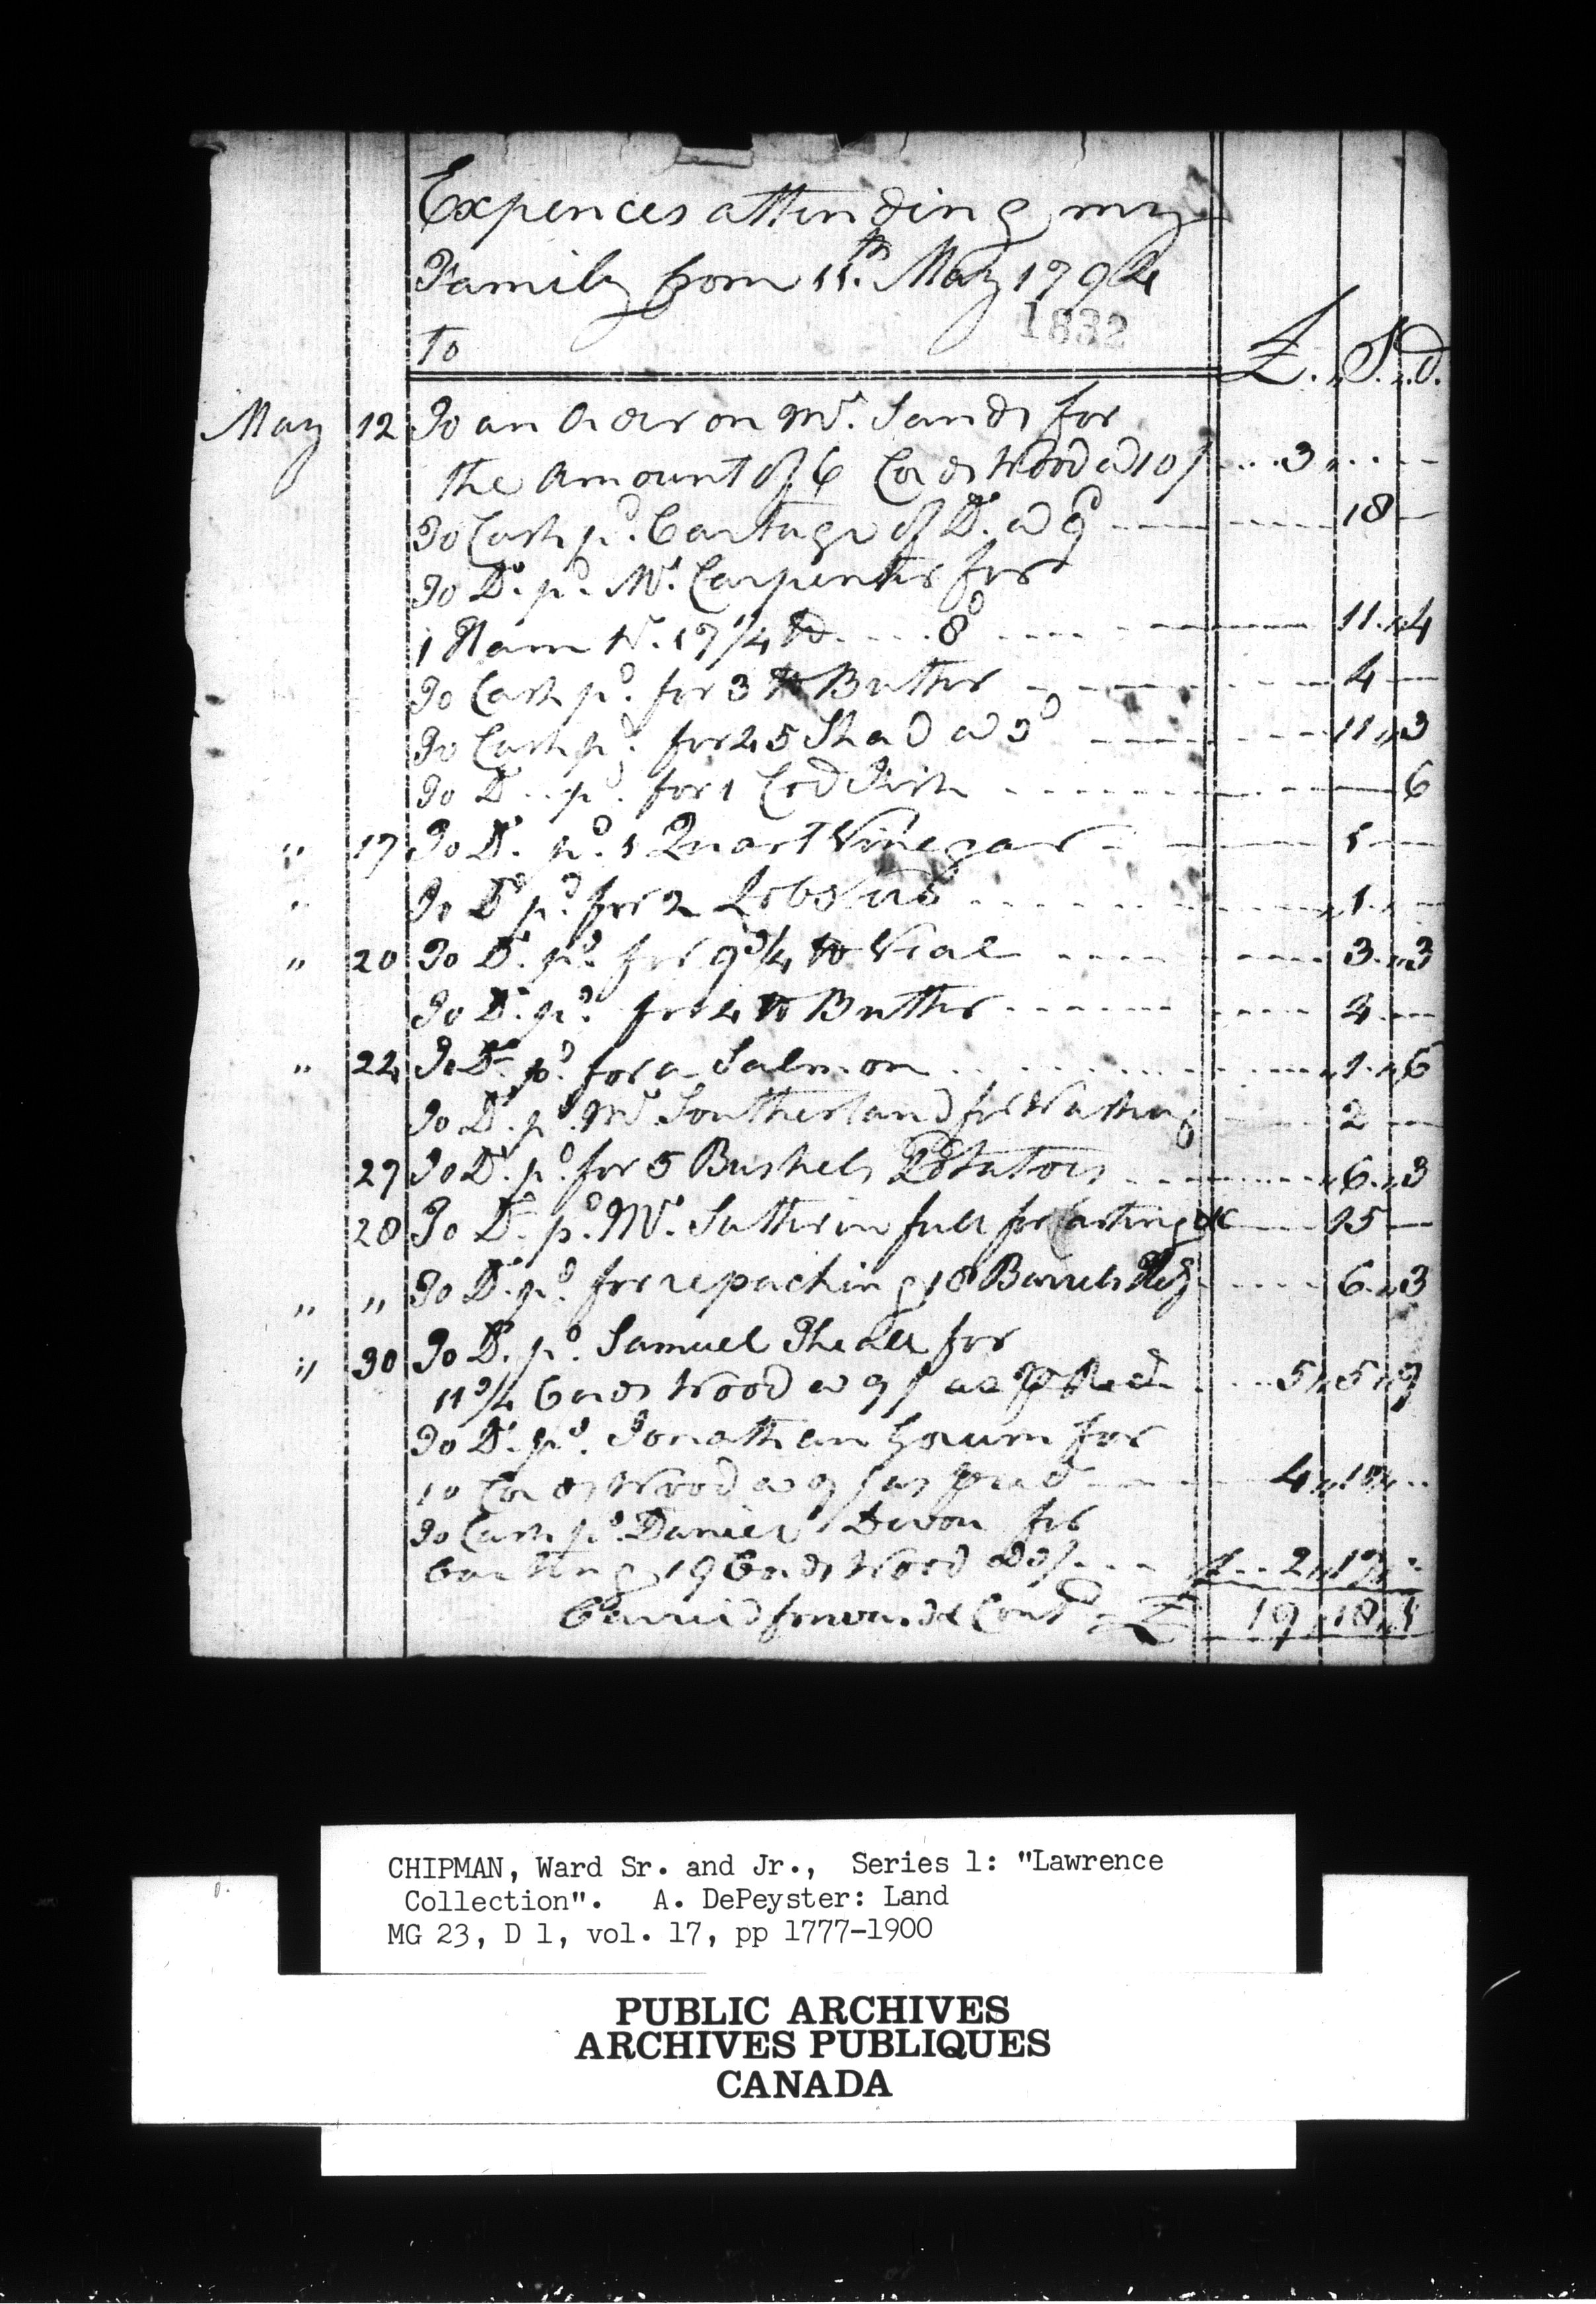 Expences attending my
Family from 11th. May 1794
1832
To
£. S. d.
May 12 To an Order on Mr. Sands for
the Amount of 6 Cords Wood @ 10/ 3
To Cash pd. Cartage of Do. @ 18
To Do. pd. Mr. Carpenter for
1 Ham Wt. 17 1/4 lb 8d 11 4
To Cash pd. for 3 lb Butter 4
To Cash pd. for 45 Shad @ 3d 11 3
To Do. pd. for 1 Cod Fish 6
" 17 To Do. pd. 1 Quart Vinegar 1
" To Do pd. for 2 Lobsters 1
" 20 To Do. pd. for 9 3/4 lb Veal 3 3
To Do. pd. for 4 lb Butter 4
" 22 To Do pd. for a Salmon 1 6
To Do. pd. Mr Southerland for Washing 2
27 To Do. pd. for 5 Bushels Potatoes 6 3
28 To Do. pd. Mr. Sutter in full for Carting &c 15
" " To Do. pd. for repacking 18 Barrels 6 3
" 30 To Do. pd. Samuel Theall for
11 3/4 Cords Wood @ 9/ as P Recd 5 5 9
To Do. pd. Jonathan for
10 Cords Wood @ 9/ as P recd 4 10
To Cash pd. Daniel Devou for
Carting 19 Cords Wood @ 3/ £ 2 17
Carried forward & Contd £ 19 18 1
CHIPMAN, Ward Sr. and Jr., Series 1: "Lawrence
Collection". A. DePeyster: Land
MG 23, D 1, vol. 17, pp 1777-1900
PUBLIC ARCHIVES
ARCHIVES PUBLIQUES
CANADA